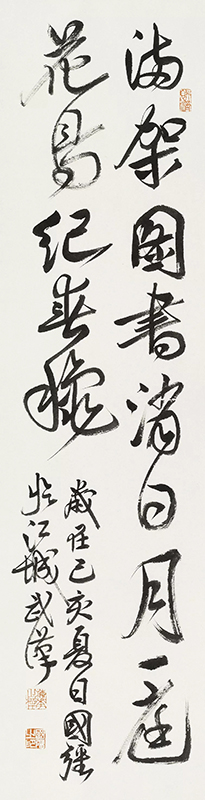 满架图书消日月一庭
花鸟纪春秋
岁在己亥夏日国强
于江城武汉